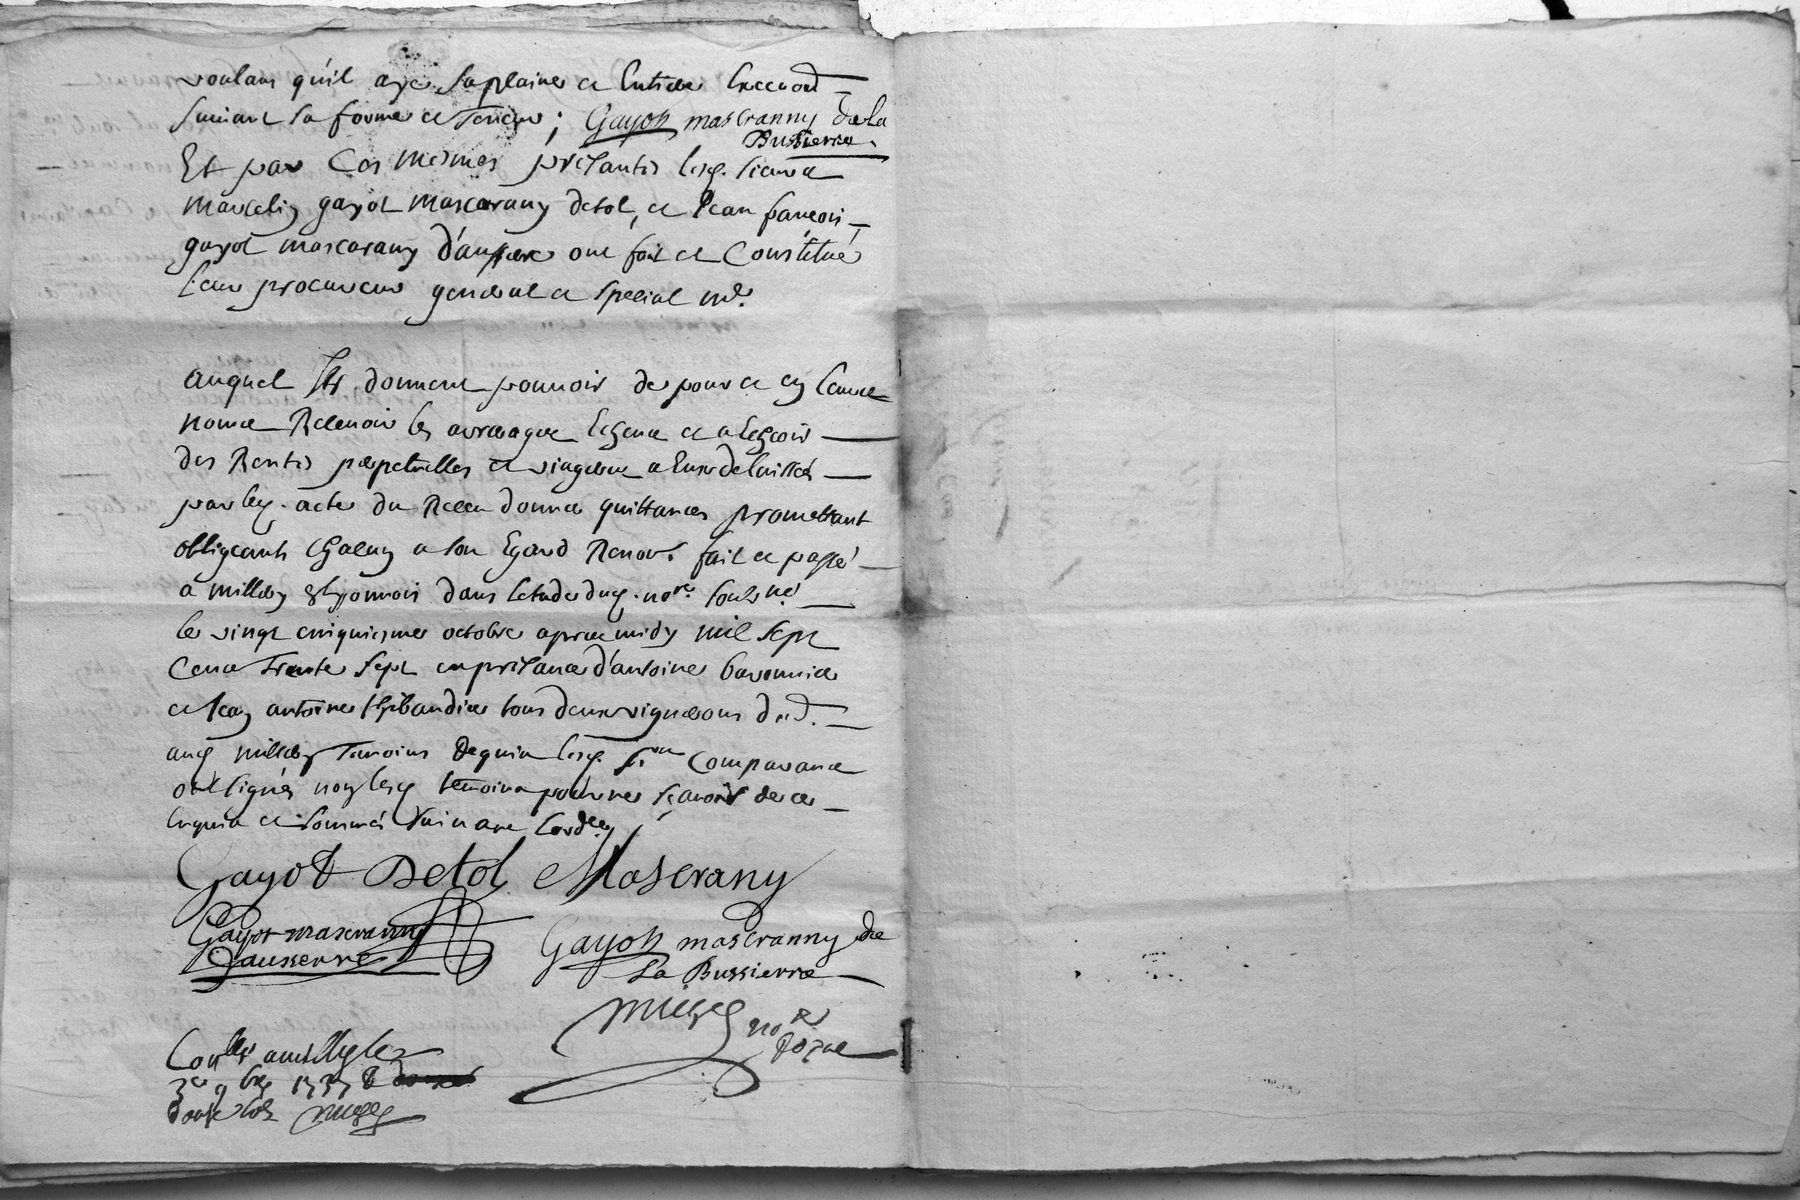 voulans qu'il aye sa plaine et Entiere Execuon
suivant sa forme et Teneur; Gayot mascranny de la
Bussierre
Et par Ces mesmes presantes lesq. sieurs
Marcelin gayot Mascarany detol, et Jean francois
gayot mascarany d'ausserre ont fait et Constitué
leur procureur general et special Mr.
auquel Ils donnent pouvoir de pour et en leurs
noms Recevoir les arrerages Escheus et a Escheoir
des Rentes perpetuelles et viageres a Eux delaissés
par lesq. actes du Receu donner quittances promettant
obligeants Chacun a son Egard Renonc. fait et passé
a millery Lyonnois dans l'etude dud. nore. soubs.né
le vingt cinquiesme octobre apres midy mil sept
Cent Trente sept en presance d'antoine baronnier
et Jean antoine thibaudier tous deux vignerons dud.
millery Temoins Requis lesq. srs Comparants
ont signés non lesq temoins pour ne sçavoir de ce
Enquis et sommés
Gayot Detol Mascrany
Gayot mascranny
Dausserre
Gayot mascranny de
la Bussierre
nore
Royal
Conllé a
3e 9bre 1737 R
douze sols